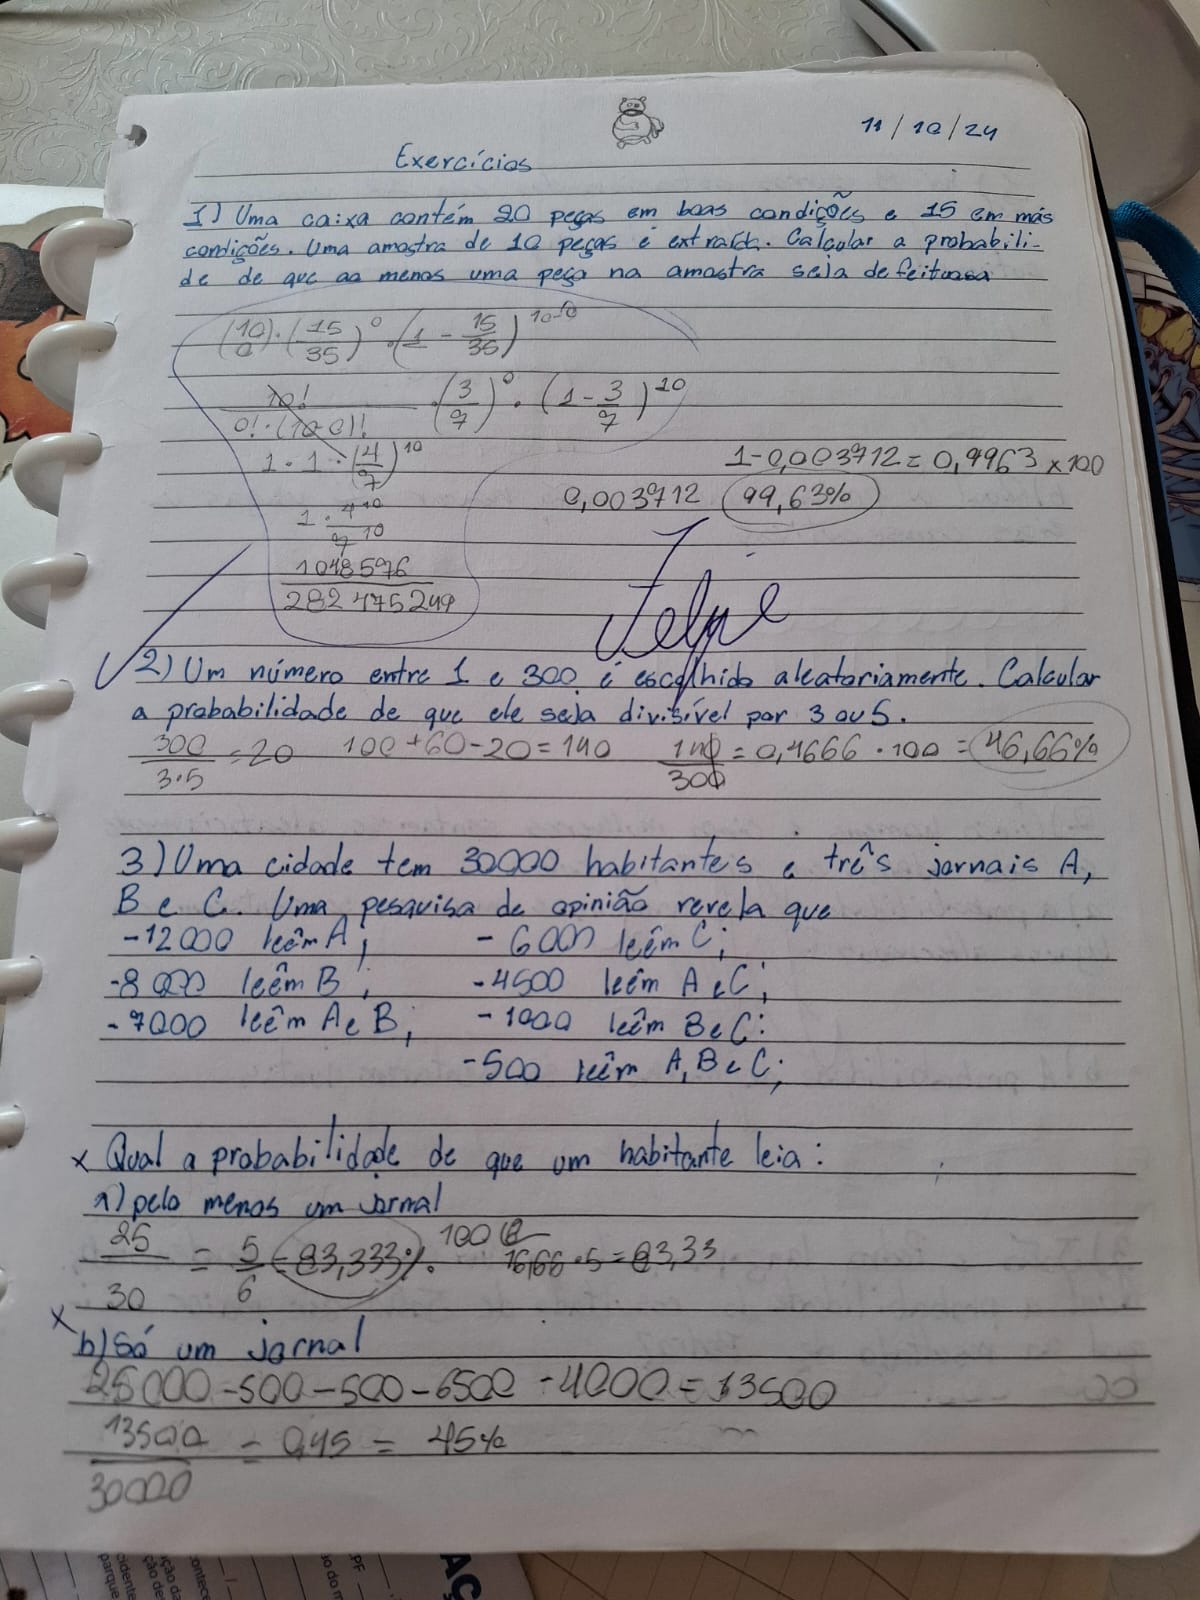 11/10/24
Exercícios
1) Uma caixa contém 20 peças em boas condições e 15 em más
condições. Uma amostra de 10 peças é extraída. Calcular a probabili-
de de que ao menos uma peça na amostra seja defeituosa
(10/0) · (15/35)^0 · (1 - 15/35)^10-0
10!/0!·(10-0)! · (3/7)^0 · (1 - 3/7)^10
1 · 1 · (4/7)^10
1-0,003712 = 0,9963 x100
0,003712 99,63%
1 · 4^10/7^10
1048576/282475249
Felipe
2) Um número entre 1 e 300 é escolhido aleatoriamente. Calcular
a probabilidade de que ele seja divisível por 3 ou 5.
300/3·5 = 20 100+60-20=140 140/300 = 0,4666 · 100 = 46,66%
3) Uma cidade tem 30000 habitantes e três jornais A,
B e C. Uma pesquisa de opinião revela que
-12000 leêm A; - 6000 leêm C;
-8000 leêm B; -4500 leêm A e C;
-7000 leêm A e B; -1000 leêm B e C;
-500 leêm A, B e C;
x Qual a probabilidade de que um habitante leia:
a) pelo menos um jornal
25/30 = 5/6 = 83,333%. 100 16,66·5=83,33
x
b) Só um jornal
25000 -500-500-6500 -4000=13500
13500/30000 = 0,45 = 45%
AÇ